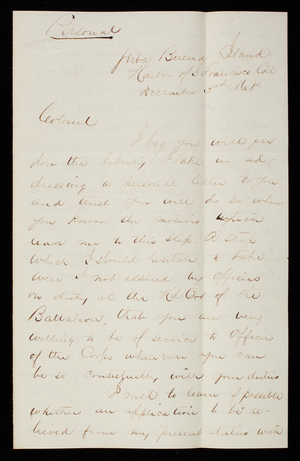 Personal
Yerba Buena Island
Harbor of S. Francisco Cal
December
Colonel
I beg you will par
don the liberty I take in ad-
dressing a personal letter to you
and trust you will do so when
you know the motives which
lead me to this step. A step
which I should hesitate to take,
were I not assured by Officers
on duty at the Hd Qrs of the
Battalion, that you are very
willing to be of service to Officers
of the Corps whenever you can
be so consistently with your duties
I wish to learn if possible
whether an application to be re-
lieved from my present duties with